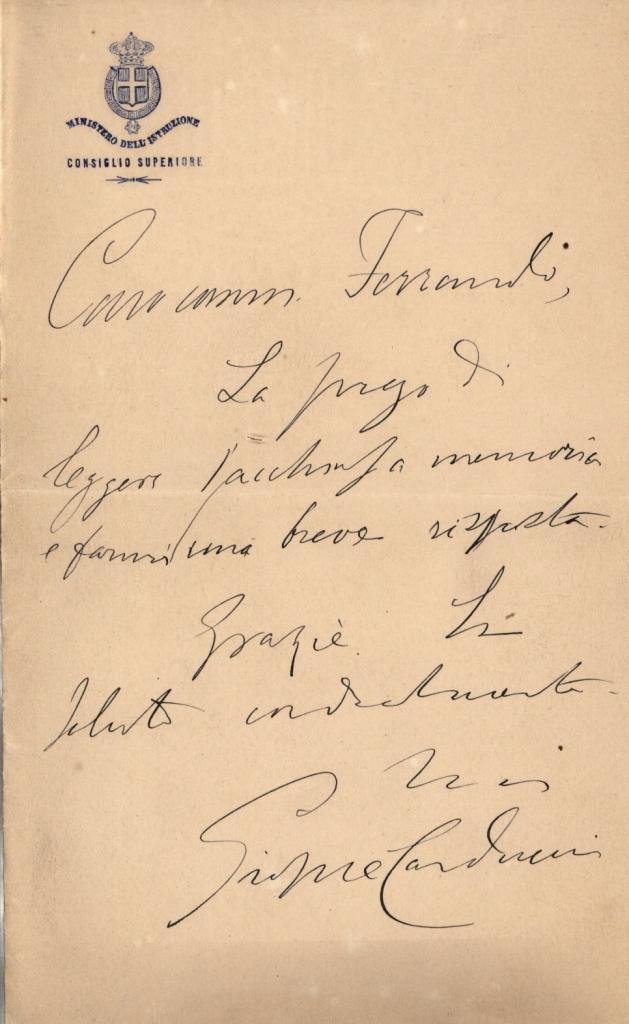 MINISTERO DELL'ISTRUZIONE
CONSIGLIO SUPERIORE
Caro comm. Ferrando,
La prego di
leggere l'acchiusa memoria
e farmi una breve risposta.
Grazie. La
saluto cordialmente.
Giosue Carducci